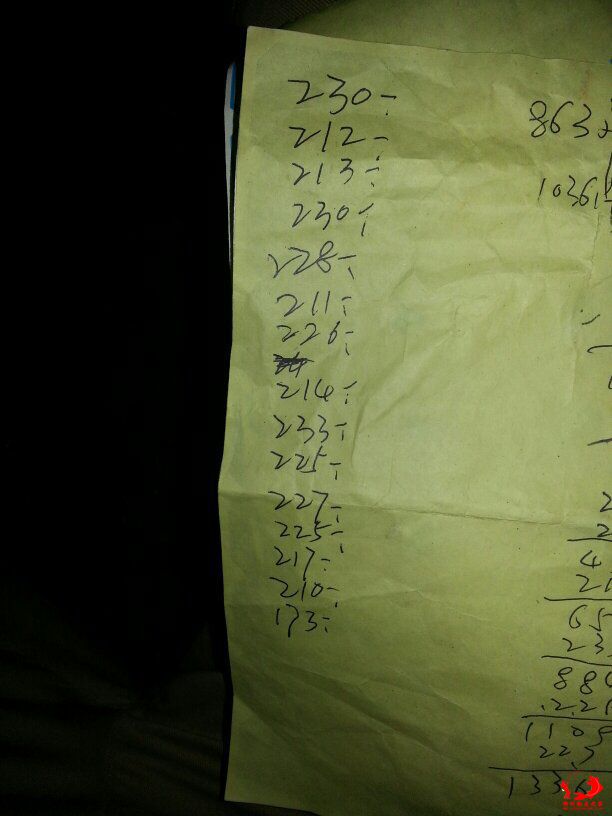 230-
212-
213-
230-
228-
211-
226-
214-
233-
225-
227-
225-
217-
210-
173-
863
1036
2
2
4
21
65
23
88
221
110
223
133